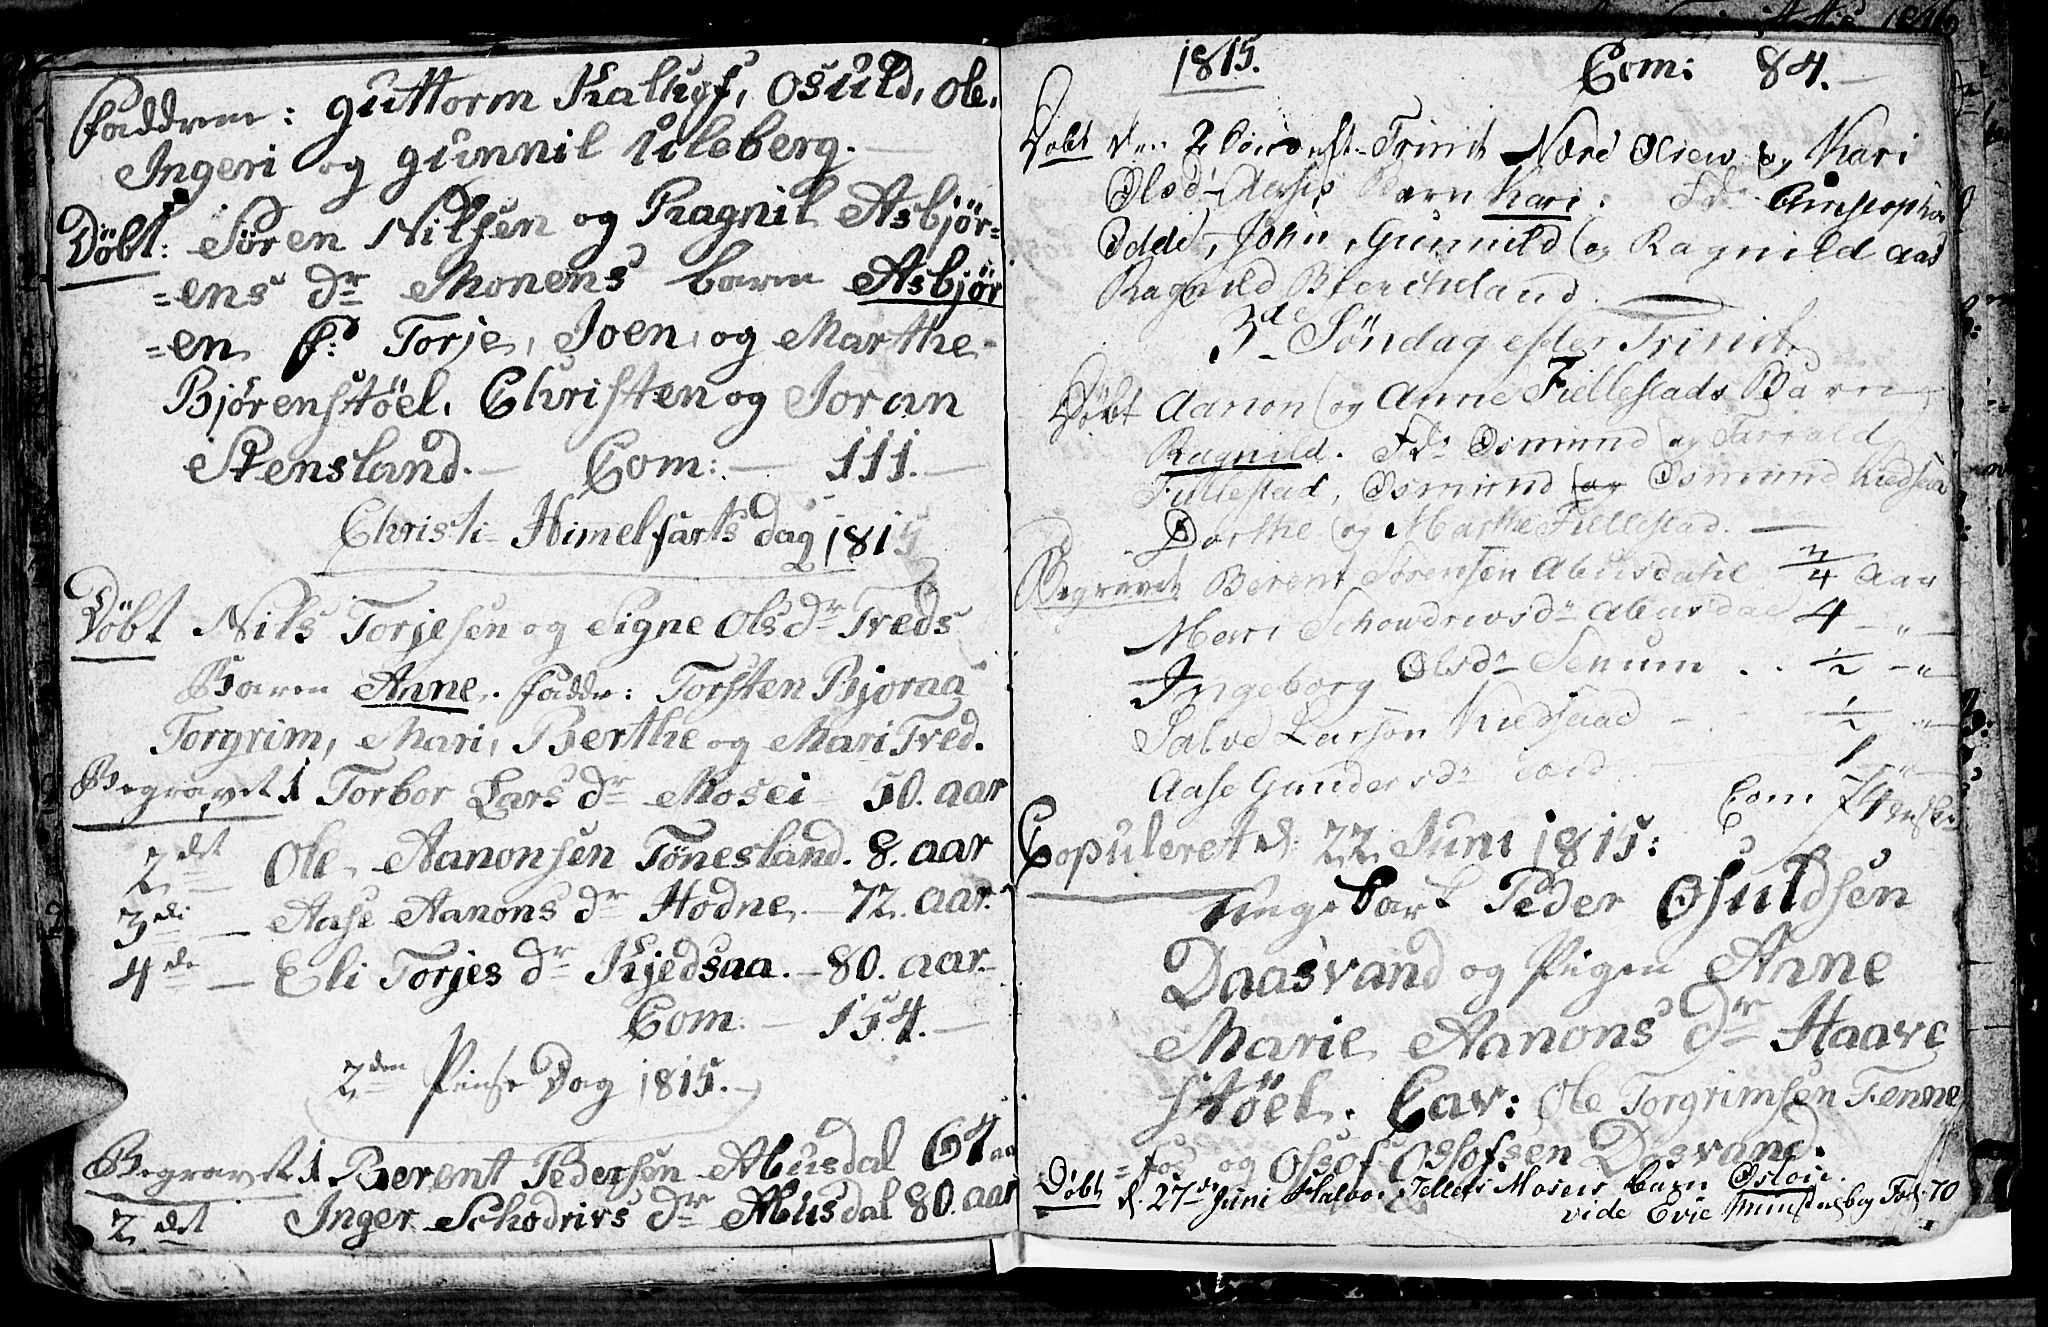 Faddrene: Guttorm Kaluof, Osuld, Ole,
Ingeri og Gunnil Uleberg. —
Döbt: Sören Nilsen og Ragnil Asbjör=
=ens dr Monens barn Asbjör
=en F: Torje, Joen, og Marthe
Bjørenstöel, Christen og Joran
Stensland. — Com: — 111. —
Christi Himelfarts dag 1815
Döbt Nils Torjesen og Signe Ols dr Treds
Barn Anne. Faddr: Torsten Bjoraa
Torgrim, Mari, Berthe og Mari Tred.
Begravet 1 Torbor Lars dr Mosei — 50. aar
2 det Ole Aanonsen Tönesland. 8. aar
3 di — Aase Aanons dr Hodne — 72. aar.
4 de — Eli Torjes dr Kjedsaa. — 80. aar. —
Com: — 154. —
2 den Pinse Dag 1815. —
Begravet 1 Berent Pedersen Abusdal 64 aar
2 det Inger Schodrivs dr Abusdal 80. aar
1815. Com: 84. —
Döbt 2 Trinit Nord Olsen og Kari
Olsd Barn Kari.
Odde, John, Gunnild og Ragnild Aas
Ragnild
3 de Söndag efter Trinit
Döbt Aanon og Anne Fiellestads Barn
Ragnild. Fdr Osmund og Tarrald
Fiellestad, Osmund og Osmund Kiedsaa
Dorthe og Marthe Fiellestad. —
Begravet Berent Sörensen Abusdahl 3/4 Aar
Mari Schowdrivsdr Abusdal 4 — " —
Ingeborg Olsdr Senum . . 1/2 — "
Salve Larson Kiedsaad — 1/2 "
Aase Gundersdr 1 "
Com 74
Copuleret d. 22 Juni 1815:
Unge Karl Peder Osuldsen
Daasvand og Pigen Anne
Marie Aanons dr Haave
Stöel. Cav: Ole Torgrimsen Fenne
=fos og Osof Ossofsen Dosvand.
Döbt d. 27de Juni Halvor Tellefs Moseis barn Osloie.
vide Evie